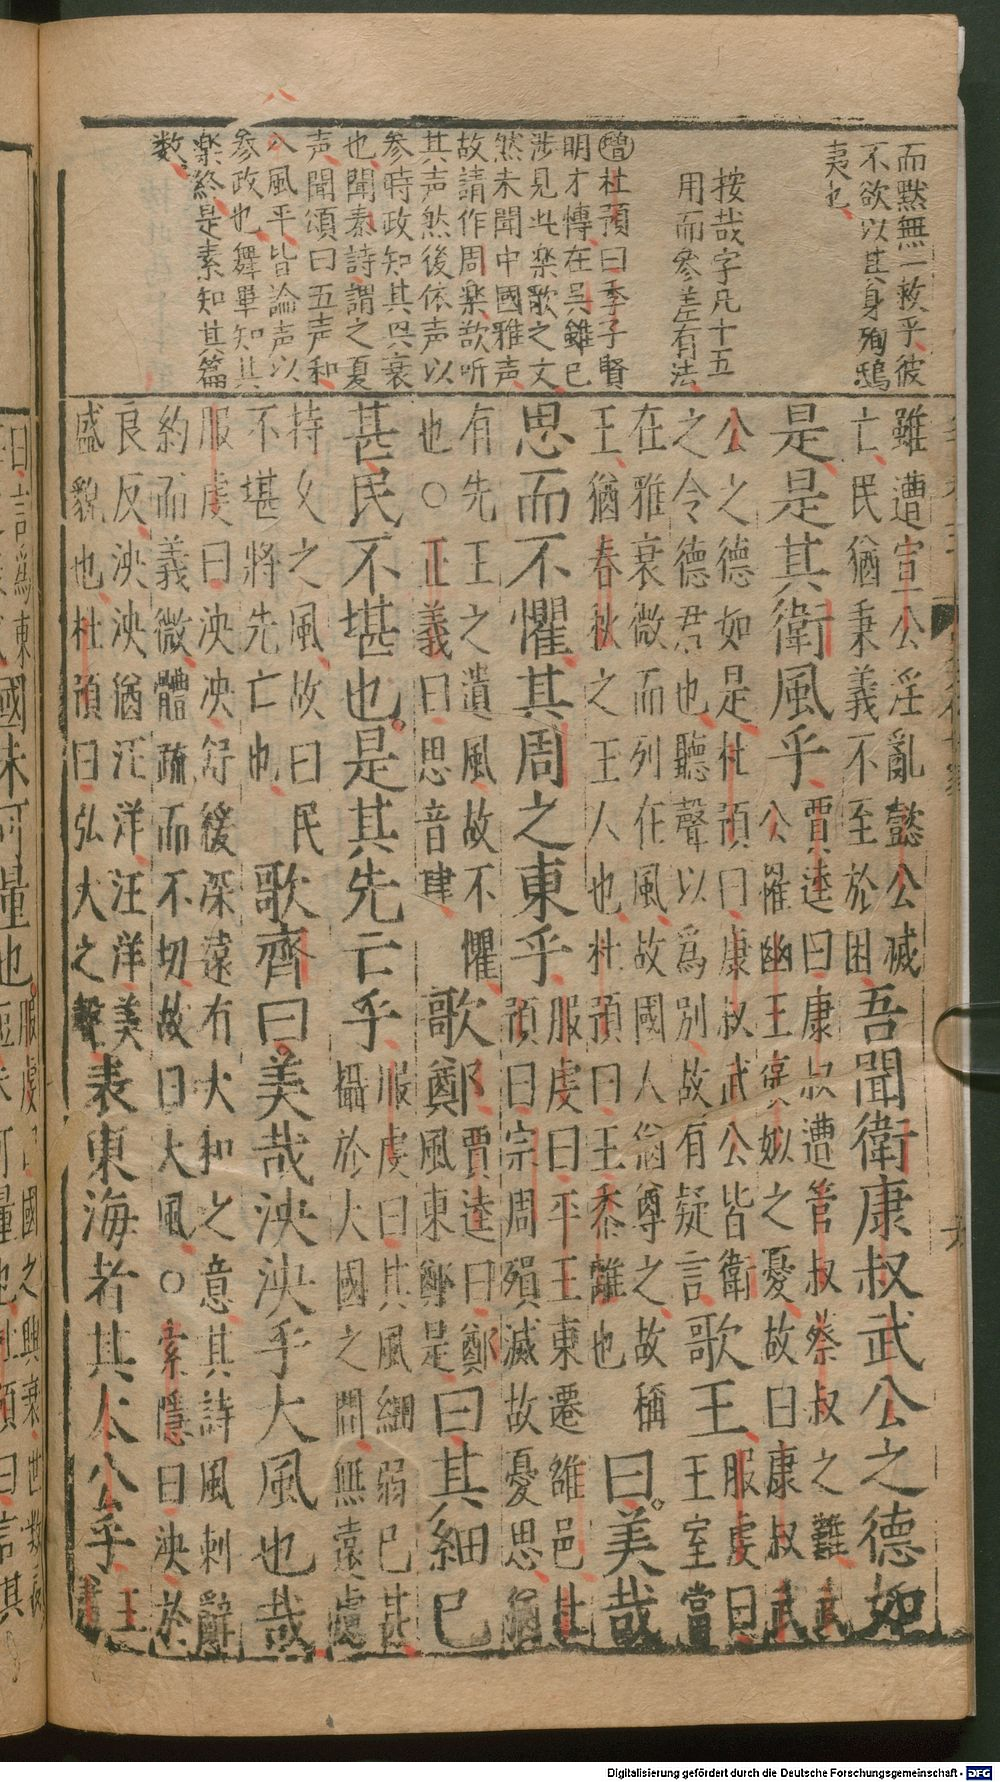 而黙無一救乎彼
不欲以其身殉鴟
夷也
按哉字凡十五
用而參差有法
増杜預曰季子賢
明才慱在吳雖已
涉見此楽歌之文
然未聞中國雅声
故請作周楽欲听
其声然後依声以
参時政知其興衰
也聞秦詩謂之夏
声聞頌曰五声和
八風平皆論声以
参政也舞畢知其
楽終是素知其篇
数
雖遭宣公淫亂懿公滅
亡民猶秉義不至於困
吾聞衛康叔武公之德如
是是其衛風乎
賈逵曰康叔遭管叔蔡叔之難武
公罹幽王褒姒之憂故曰康叔武
公之德如是杜預曰康叔武公皆衛
之令德君也聽聲以為別故有疑言
歌王
服虔曰
王室當
在雅衰微而列在風故國人猶尊之故稱
王猶春秋之王人也杜預曰王黍離也
曰美哉
思而不懼其周之東乎
服虔曰平王東遷雒邑杜
預曰宗周殞滅故憂思猶
有先王之遺風故不懼
也○正義曰思音肆
歌鄭
賈逵曰鄭
風東鄭是
曰其細已
甚民不堪也是其先亡乎
服虔曰其風細弱已甚
攝於大國之間無遠慮
持久之風故曰民
不堪將先亡也
歌齊曰美哉泱泱乎大風也哉
服虔曰泱泱舒緩深遠有大和之意其詩風刺辭
約而義微體疏而不切故曰大風○索隱曰泱於
良反泱泱猶汪洋汪洋美
盛貌也杜預曰弘大之聲
表東海者其太公乎
王
肅
曰言為東
國未可量也
服虔曰國之興衰世數長
杜預曰言其
Digitalisierung gefördert durch die Deutsche Forschungsgemeinschaft - DFG